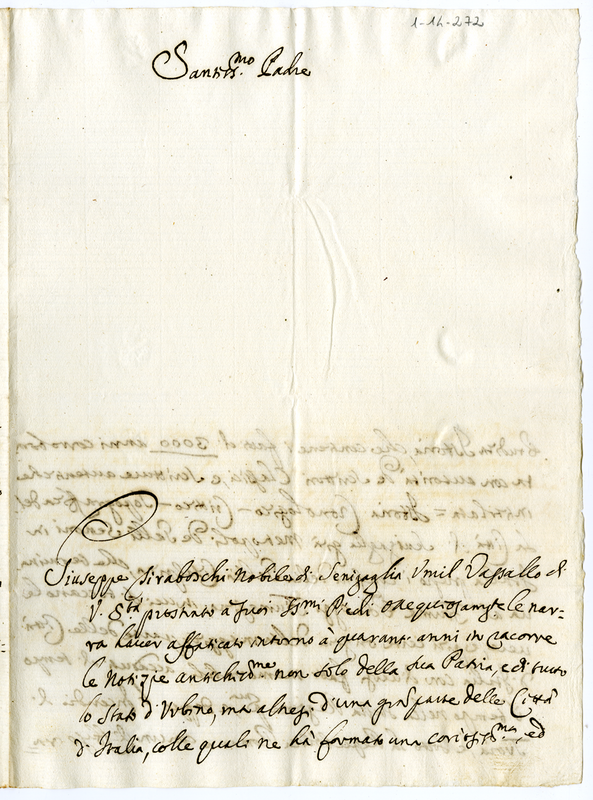 1-14-272
Santiss.mo Padre
Giuseppe Tiraboschi Nobile di Senigaglia Umil Vassallo di
V. S.tà prostrato a suoi SS.mi Piedi ossequiosam.te le nar-
ra haver affaticato intorno à quarant' anni in raccorre
le Notizie antichiss.me non solo della sua Patria, e di tutto
lo Stato d'Urbino, ma altresì d'una gran parte delle Città
d'Italia, colle quali ne hà formato una coriosiss.ma, ed